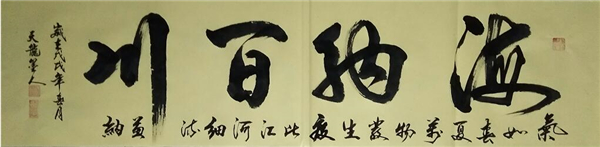 海納百川
氣如春夏萬物發生度比江河細流兼納
歲在戊戌年春月
天龍墨人